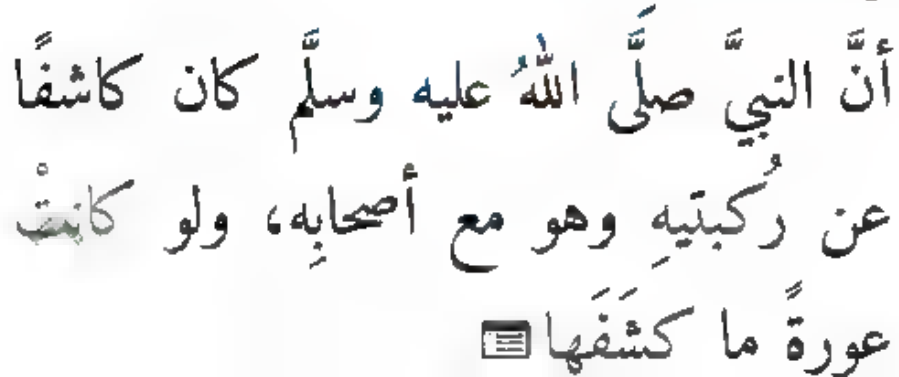 أنَّ النبيَّ صلَّى اللهُ عليه وسلَّم كان كاشفًا
عن رُكبتيهِ وهو مع أصحابِه، ولو كانتْ
عورةً ما كشَفَها